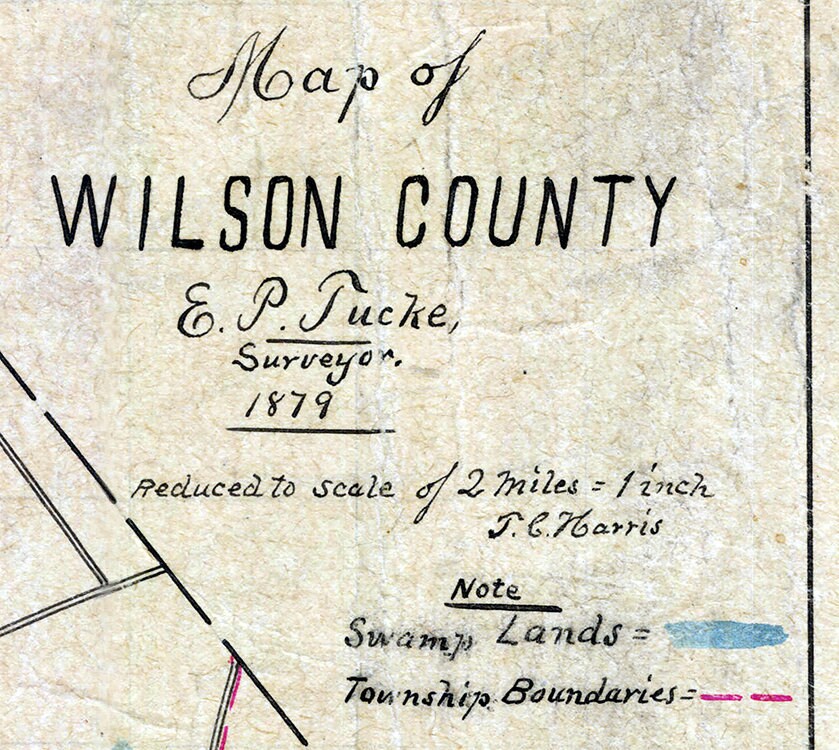 Map of
WILSON COUNTY
E. P. Tucke,
Surveyor.
1879
Reduced to scale of 2 miles = 1 inch
T. C. Harris
Note
Swamp Lands =
Township Boundaries =